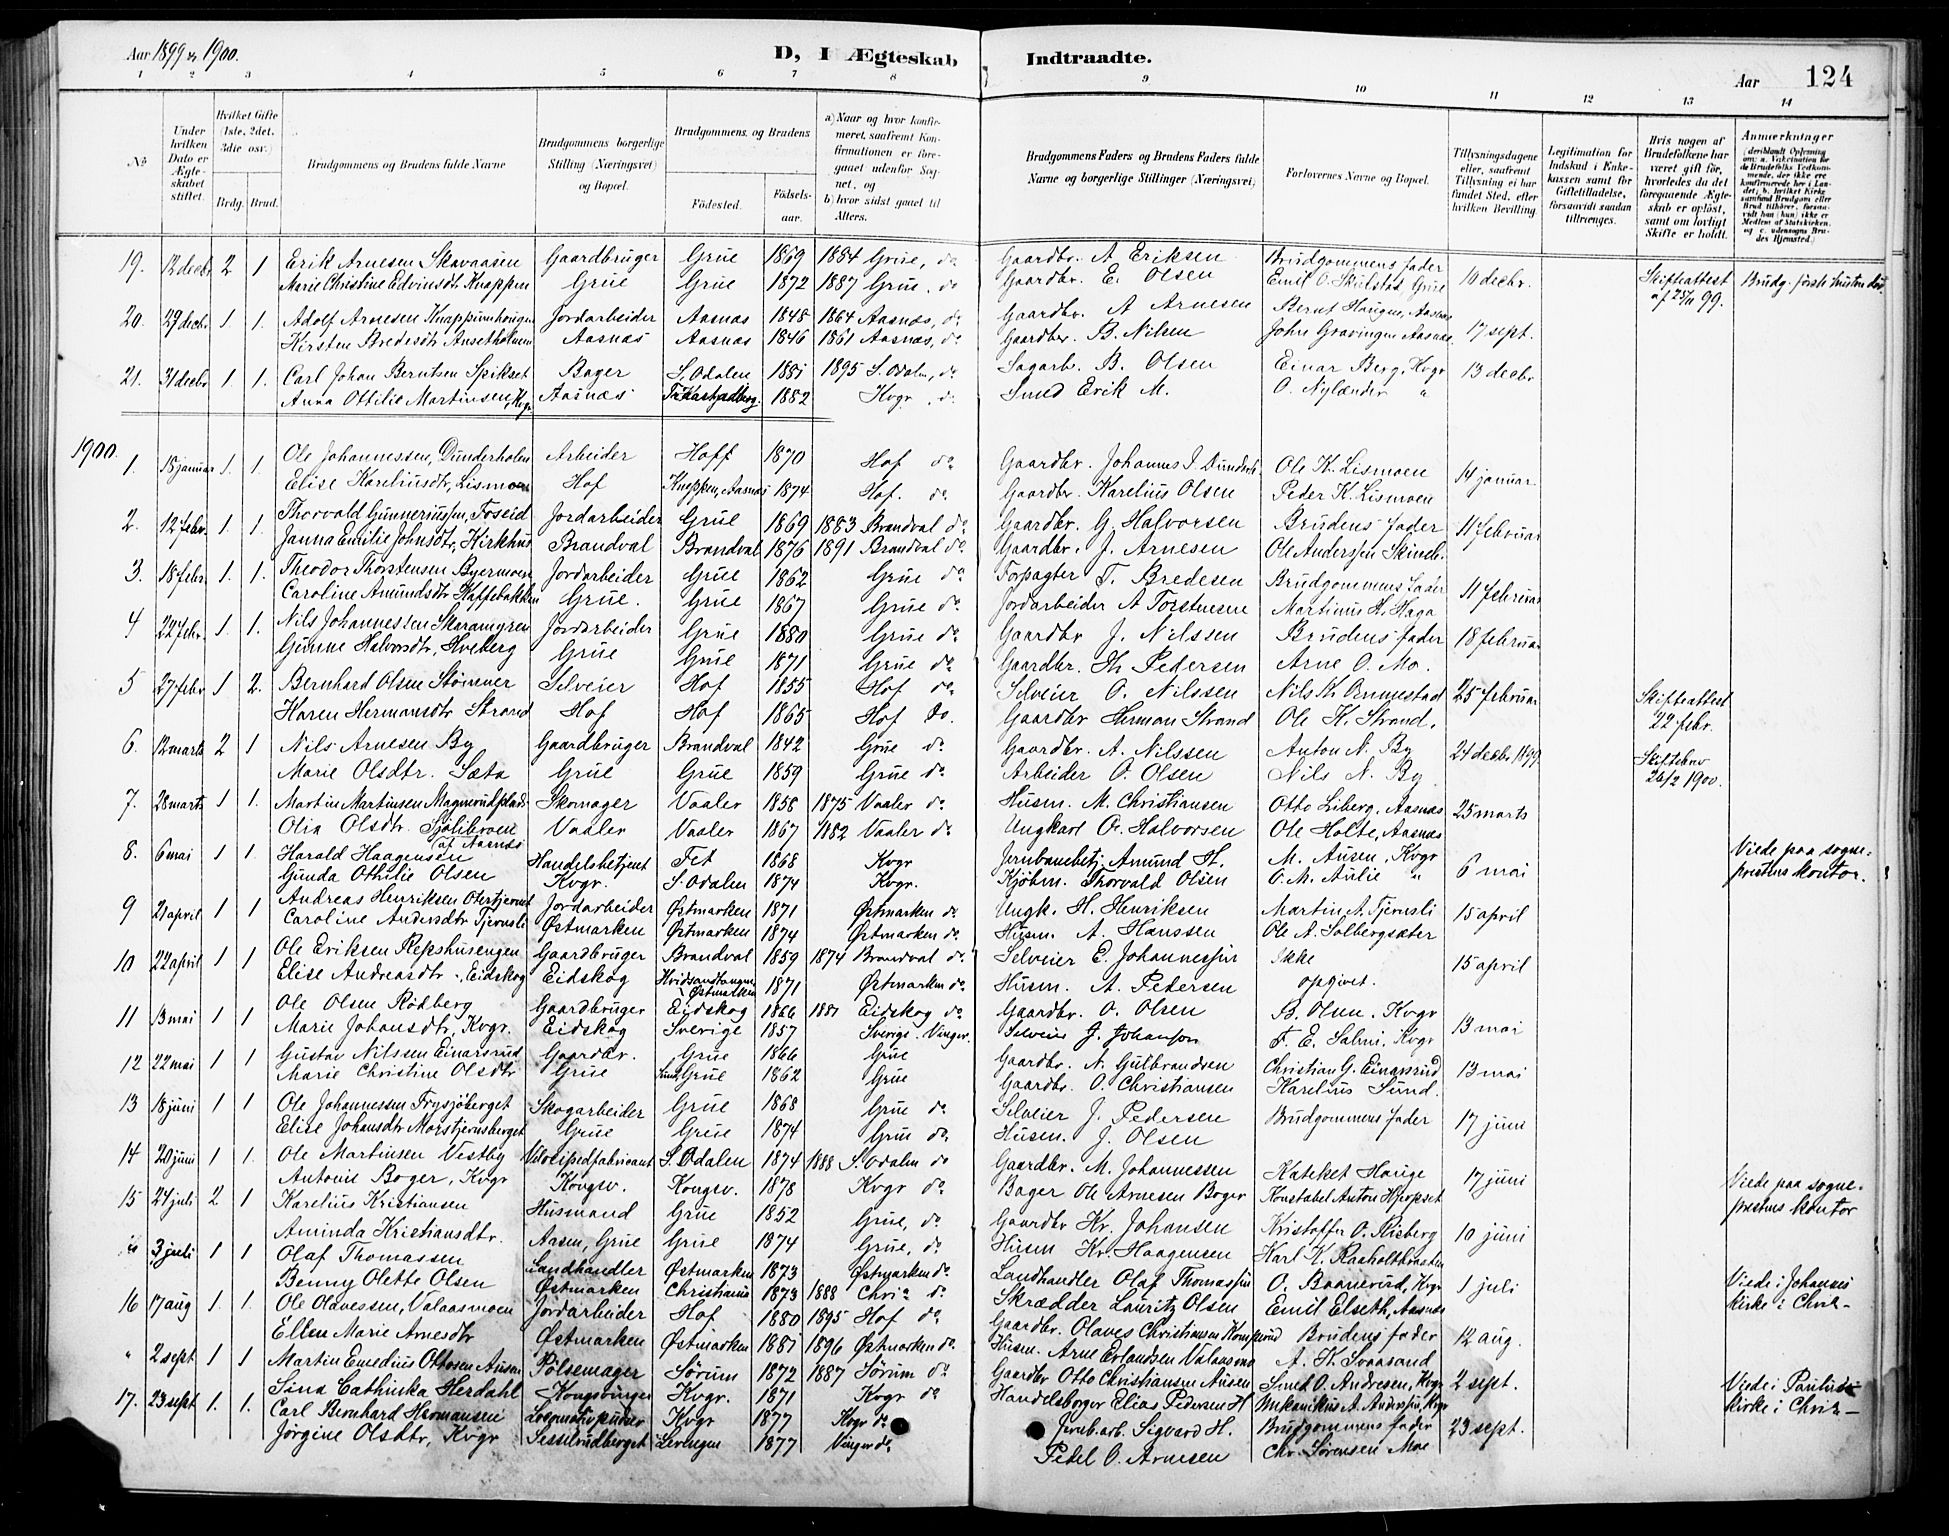 Aar 1899 & 1900.
D, I Ægteskab Indtraadte.
Aar 124
1 2 3 4 5 6 7 8 9 10 11 12 13 14
No
Under hvilken Dato er Ægteskabet stiftet.
Hvilket Gifte (1ste, 2det, 3die osv.)
Brdg. Brud.
Brudgommens og Brudens fulde Navne
Brudgommens borgerlige Stilling (Næringsvei) og Bopæl.
Brudgommens og Brudens
Fødested. Fødselsaar.
a) Naar og hvor konfirmeret, saafremt Konfirmationen er foregaaet udenfor Sognet, og
b) hvor sidst gaaet til Alters.
Brudgommens Faders og Brudens Faders fulde Navne og borgerlige Stillinger (Næringsvei)
Forlovernes Navne og Bopæl.
Tillysningsdagene eller, saafremt Tillysning ei har fundet Sted, efter hvilken Bevilling.
Legitimation for Indskud i Enkekassen samt for Giftetilladelse, forsaavidt saadan tiltrænges.
Hvis nogen af Brudefolkene har været gift før, hvorledes da det foregaaende Ægteskab er opløst, samt om lovligt Skifte er holdt.
Anmærkninger
19. 12 decbr 2 1 Erik Arnesen Skavaasen Gaardbruger Grue 1869 1884 Grue, do Gaardbr. A Eriksen Brudgommens fader 10 decbr. Skifteattest af 25/11 99. Brudg. første hustru død.
Marie Christine Edvinsdtr Knappen Grue Grue 1872 1887 Grue, do Gaardbr. E. Olsen Emil O. Skulstad, Grue
20. 29 decbr 1. 1. Adolf Arnesen Knappumhougen Jordarbeider Aasnæs 1848 1864 Aasnæs, do Gaardbr. A Arnesen Bernt Haugen, Aasnæs 17 sept.
Kirsten Bredesdtr Ansetholmen Aasnæs Aasnæs 1846 1861 Aasnæs, do Gaardbr. B. Nilsen John Gravingen Aasnæs
21. 31 decbr 1. 1. Carl Johan Berntsen Spikset Bager S. Odalen 1881 1895 S. Odalen, do Sagarb. B. Olsen Einar Berg, Kvgr 13 decbr
Anna Othilie Martinsen, Kvgr Aasnæs 1882 Kvgr. do Smed Erik M. O. Nylænder "
1900.
1. 18 januar 1. 1. Ole Johannessen, Dunderholen Arbeider Hoff 1870 Hof do Gaardbr. Johannes J. Dunderh. Ole K. Lismoen 14 januar.
Elise Kareliusdtr, Lismoen Hof Knappen, Aasnæs 1874 Hof. do Gaardbr. Karelius Olsen Peder K. Lismoen
2. 12 febr. 1. 1. Thorvald Gunneriussen, Foseid Jordarbeider Grue 1869 1883 Brandval do Gaardbr. G. Halvorsen Brudens fader 11 februar
Janna Emilie Johnsdtr, Kirkhus Brandval Brandval 1876 1891 Brandval do Gaardbr. J. Arnesen Ole Anderssen
3. 18 febr. 1. 1. Theodor Thorstensen Byermoen Jordarbeider Grue 1862 Grue do Forpagter T. Bredesen Brudgommens fader 11 februar
Caroline Amundsdtr Kaffebakken Grue. Grue 1867 Grue do Jordarbeider A Torstensen Martinus H. Haga
4 22 febr. 1. 1. Nils Johannessen Skaramyren Jordarbeider Grue 1880 Grue do Gaardbr J. Nilssen Brudens fader 18 februar
Gunne Halvorsdtr, Hveberg Grue Grue 1871 Grue do Gaardbr. H. Pedersen Arne O. Mo.
5 27 febr 1 2. Bernhard Olsen Stømner Selveier Hof 1855 Hof do Selveier O. Nilssen Nils Kr. Ommestad 25 februar Skifteattest 22 febr.
Karen Hermansdtr Strand Hof Hof 1865 Hof Do. Gaardbr Herman Strand Ole K. Strand.
6. 12 marts 2 1 Nils Arnesen By Gaardbruger Brandval 1842 Grue do Gaardbr. A. Nilssen Anton N. By 24 decbr 1899 Skiftebrev 26/2 1900.
Marie Olsdtr. Sæta Grue Grue 1859 Grue do Arbeider O. Olsen Nils N. By
7. 28 marts 1 1. Martin Martinsen Magnerudplads Skomager Vaaler 1858 1875 Vaaler do Husm. M. Christiansen Otto Liberg, Aasnæs 25 marts
Olia Olsdtr. Sjølibroen af Aasnæs Vaaler Vaaler 1867 1882 Vaaler do Ungkarl O. Halvorsen Ole Holte, Aasnæs
8. 6 mai 1 1. Harald Haagensen Handelsbetjent Fet 1868 Kvgr Jernbanebetj. Amund H. M. Ausen, Kvgr 6 mai Viede paa sogneprestens kontor.
Gunda Othilie Olsen Kvgr. S. Odalen 1874 Kvgr. Kjøbm. Thorvald Olsen O. M. Aulie "
9 21 april 1 1 Andreas Henriksen Otertjernet Jordarbeider Østmarken 1871 Østmarken do Ungk. H. Henriksen Martin A. Tjernsli 15 april
Caroline Andersdtr Tjernsli Østmarken Østmarken 1874 Østmarken do. Husm. A. Hanssen Ole A. Solbergsæter
10 22 april 1 1 Ole Eriksen Repshusengen Gaardbruger Brandval 1859 1874 Brandval do Selveier E. Johannessen Ikke 15 april
Elise Andreasdtr, Eidskog Eidskog Østmarken 1871 Østmarken do Husm. A. Pedersen opgivet.
11 13 mai 1 1 Ole Olsen Rødberg Gaardbruger Eidskog 1866 1881 Eidskog do Gaardbr. O. Olsen B. Olsen, Kvgr 13 mai
Marie Johansdtr, Kvgr. Eidskog Sverige 1857 Sverige. Vinger. Selveier J. Johanson F. E. Salmi, Kvgr
12 22 mai 1 1 Gustav Nilssen Einarsrud Gaardbr. Grue 1866 Grue Gaardbr. N. Gulbrandsen Christian G. Einarsrud 13 mai
Marie Christine Olsdtr Grue Sund Grue 1862 Grue Gaardbr O. Christiansen Karelius Sund.
13 18 juni 1 1 Ole Johannessen Frysjøberget Skogarbeider Grue 1868 Grue do Selveier J. Pedersen Brudgommens fader 17 juni
Elise Johansdtr Morstjernsberget Grue Grue 1874 Grue do. Husm. J. Olsen
14 20 juni 1 1. Ole Martinsen Vestby Velocipedfabricant S. Odalen 1874 1888 S. Odalen do Gaardbr. M. Johannessen Kateket Hauge 17 juni Viede paa sogneprestens kontor
Antonie Boger, Kvgr Kongsv. Kongsv. 1878 Kvgr do Bager Ole Arnesen Boger Konstabel Anton Hpopset
15 24 juli 2 1 Karelius Kristiansen Husmand Grue 1852 Grue, do Gaardbr Kr. Johansen Kristoffer O. Risberg 10 juni
Aminda Kristiansdtr. Aasen, Grue Grue 1874 Grue, do Husm Kr. Haagensen Karl K. Raaholtbraaten
3 juli 1 1 Olaf Thomassen Landhandler Østmarken 1873 Østmarken do Landhandler Olaf Thomassen O. Baanerud, Kvgr 1 juli Viede i Johannes kirke i Chria
Benny Olette Olsen Østmarken Christiania 1873 1888 Chria do Skrædder Lauritz Olsen Emil Elseth, Aasnæs
16 17 aug 1. 1. Ole Olavessen, Valaasmoen Jordarbeider Hof 1880 1895 Hof do Gaardbr. Olaves Christiansen Brudens fader 12 aug.
Ellen Marie Arnesdtr Østmarken Østmarken 1881 1896 Østmarken do. Husm. Arne Erlandsen Valaasmo A. K. Svaasand
" 2 sept 1 1 Martin Emedius Ottosen Ausen Pölsemager Sørum 1872 1887 Sørum do Gaardbr Otto Christiansen Ausen Smed O. Andresen, Kvgr 2 sept. Viede i Paulus kirke i Chria
Sina Cathinka Herdahl Kongsvinger Kvgr. 1871 Kvgr do Handelsborger Elias Pedersen H Mekanikus A. Andersen, Kvgr
17. 23 sept 1. 1. Carl Bernhard Hermansen Locomotivpudser Kvgr 1877 Kvgr do Jernb. arb. Sigvard H. Brudgommens fader 23 sept.
Jørgine Olsdtr, Kvgr Sesselrudberget 1877 Vinger do Pedel O. Arnesen Chr. Sørensen Moe